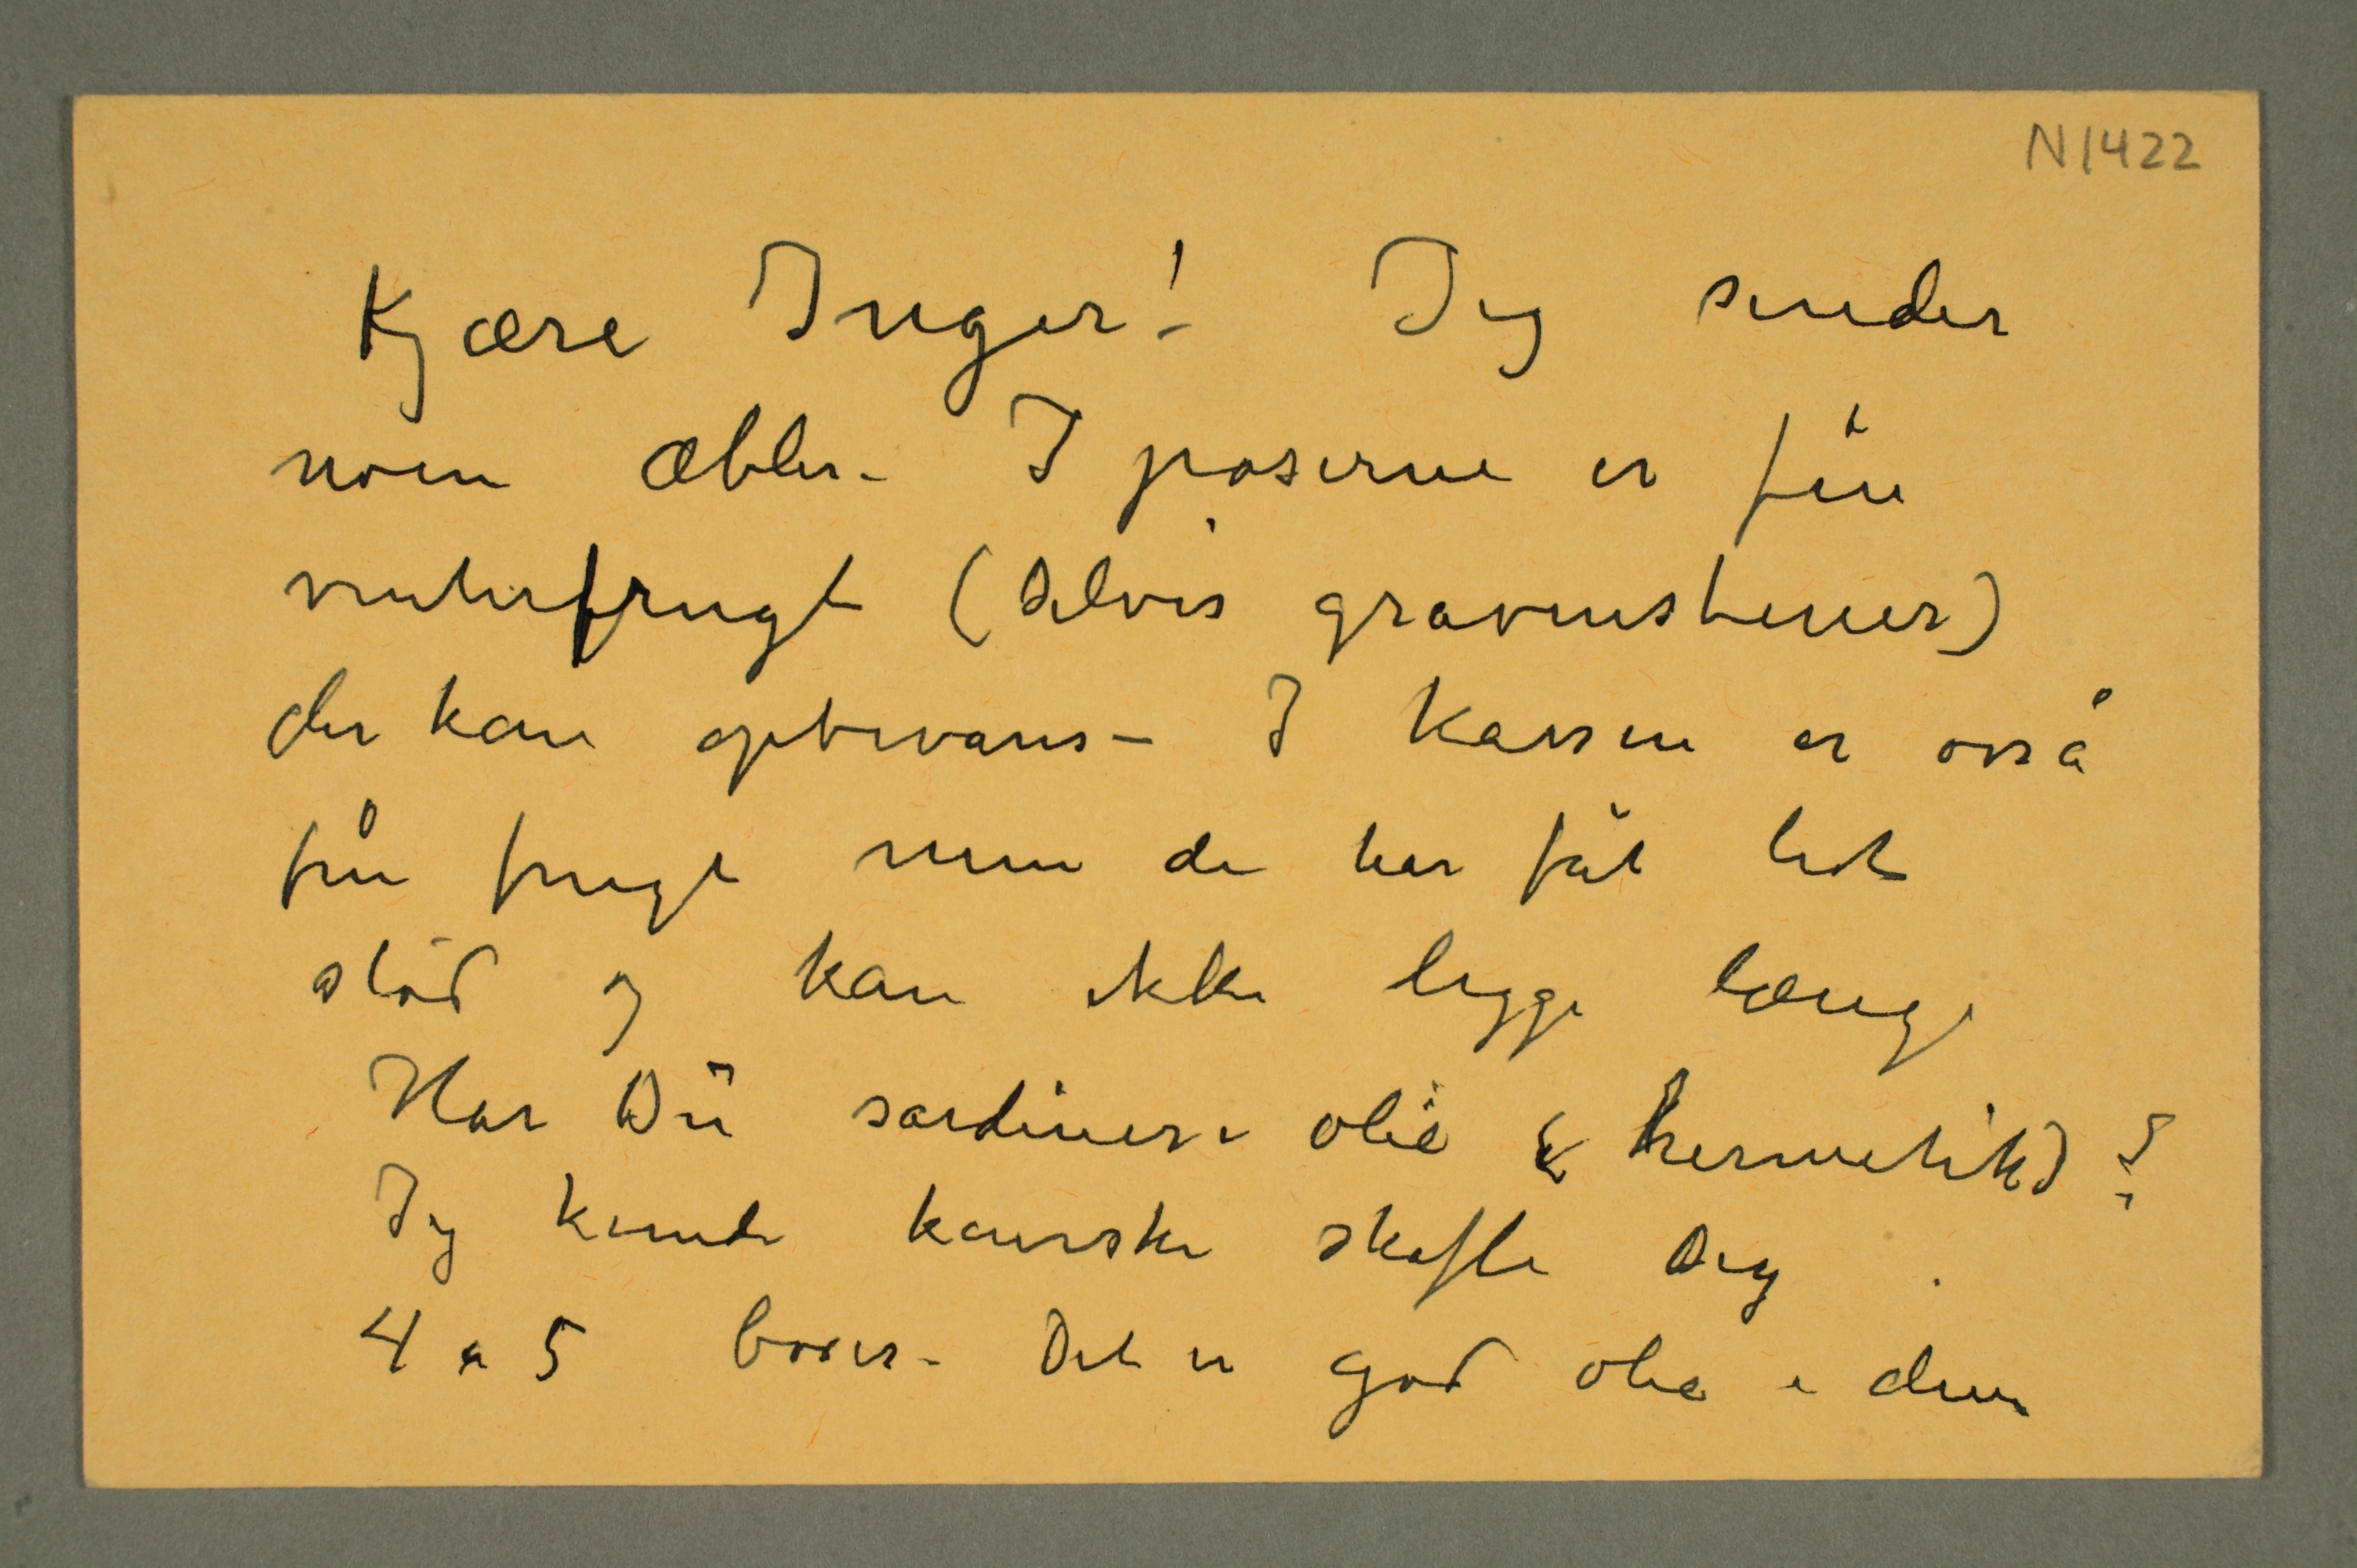 N1422
Kjære Inger! Jeg sender
noen æbler – I poserne er fin
vinterfrugt (delvis gravenstener)
der kan opbevares – I kassen er osså
fin frugt men de har fåt lidt
stød og kan ikke ligge længe
Har Du sardiner i olie (hermetik)?
Jeg kunde kanske skaffe Dig
4 a 5 boxer – Det er god olie i dem